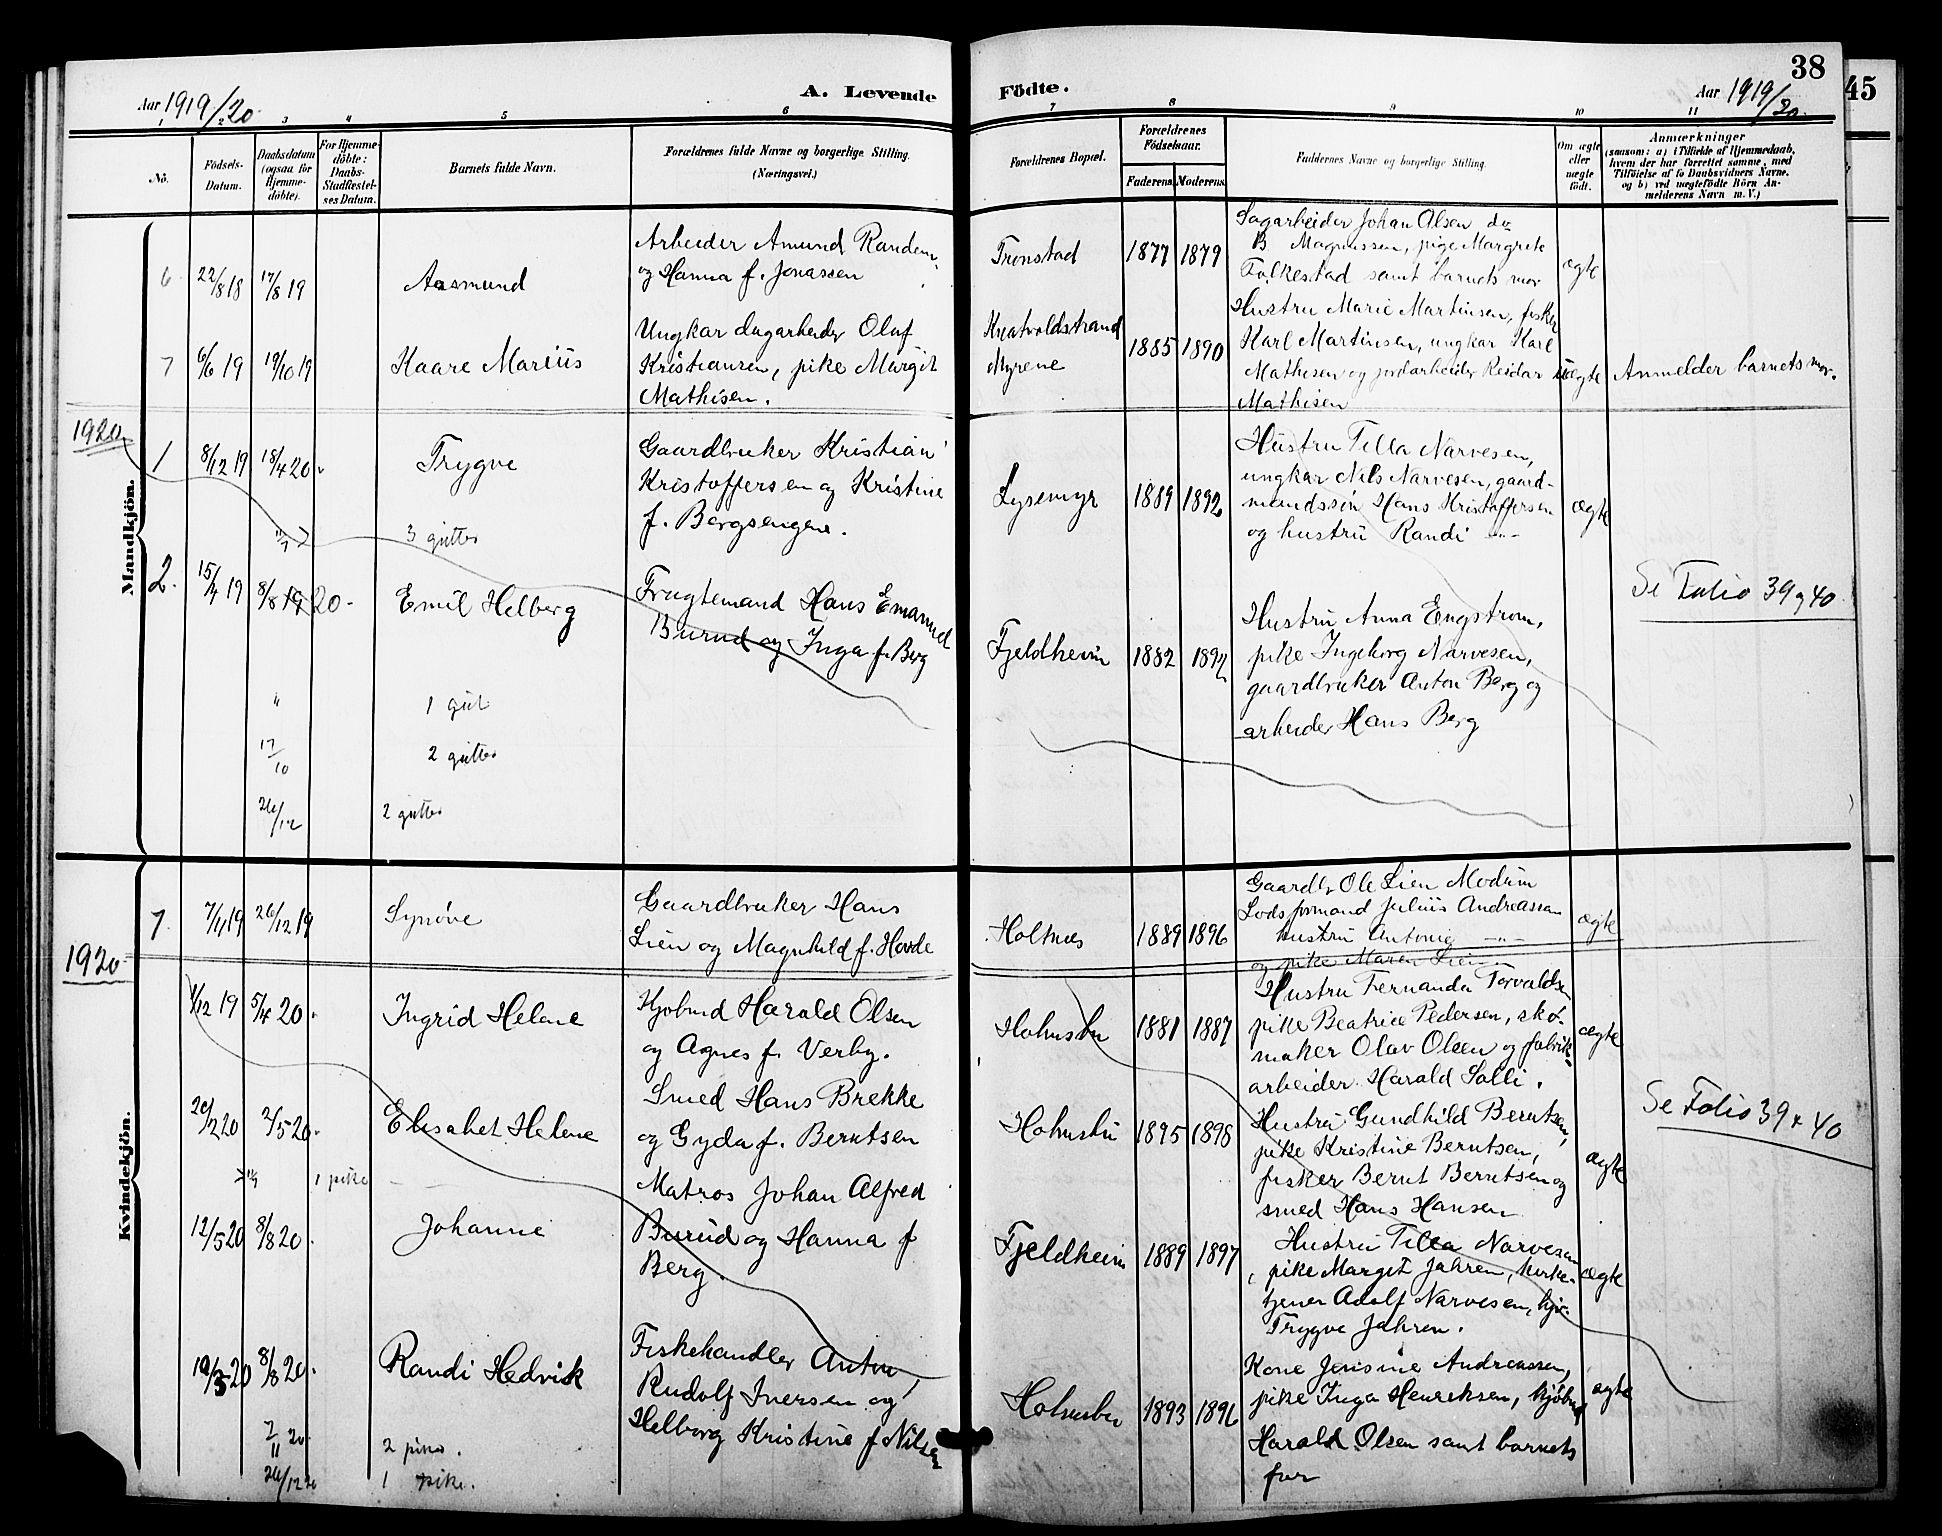 38
45
Aar 1919/20
A. Levende
Födte.
Aar 1919/20.
3 4 5 6 7 8 9 10 11
No.
Födsels-
Datum.
Daabsdatum
(ogsaa for
Hjemme-
döbte).
For Hjemme-
döbte:
Daabs-
Stadfæstel-
ses Datum.
Barnets fulde Navn.
Forældrenes fulde Navne og borgerlige Stilling.
(Næringsvei.)
Forældrenes Bopæl.
Forældrenes
Födselsaar.
Faderens
Moderens
Faddernes Navne og borgerlige Stilling.
Om ægte
eller
uægte
födt.
Anmærkninger
(saasom: a) i Tilfælde af Hjemmedaab,
hvem der har forrettet samme, med
Tilföielse af to Daabsvidners Navne,
og b) ved uægtefödte Börn An-
melderens Navn m.V.)
Mandkjön.
6 22/8 18 17/8 19 Aasmund
Arbeider Amund Randem
og Hanna f. Jonassen
Tronstad 1877 1879
Sagarbeider Johan Olsen do
B. Magnussen, pige Margrete
Folkestad samt barnets mor
ægte
7 6/6 19 19/10 19 Kaare Marius
Ungkar dagarbeider Oluf
Kristiansen, pike Margit
Mathisen.
Knatvoldstrand
Myrene
1885 1890
Hustru Marie Martinsen, fisker
Karl Martinsen, ungkar Karl
Mathisen og jordarbeider Reidar
Mathisen
uægte
Anmelder barnets mor.
1920
1 8/12 19 18/4 20 Trygve
Gaardbruker Kristian
Kristoffersen og Kristine
f. Bergsengene.
Lysemyr 1889 1892
Hustru Tilla Narvesen,
ungkar Nils Narvesen, gaard-
mandssön Hans Kristoffersen
og hustru Randi -"-
ægte
3 gutter
2. 15/7 19 8/8 19 20- Emil Helberg
Frugtemand Hans Emanuel
Burud og Inga f. Berg
Fjeldheim 1882 1892
Hustru Anna Engstrom,
pike Ingeborg Narvesen,
gaardbruker Anton Berg og
arbeider Hans Berg
Se Folio 39 og 40
" 1 gut
17/10 2 gutter
26/12 2 gutter
Kvindekjön.
7 7/11 19 26/12 19 Synöve
Gaardbruker Hans
Lien og Magnhild f. Hovde
Holtnes 1889 1896
Gaardbr Ole Lien Modum
Lodsformand Julius Andreassen
hustru Antonie -"-
og pike Maren Lien
ægte
1920
1/12 19 5/4 20. Ingrid Helene
Kjöbmd Harald Olsen
og Agnes f. Verby.
Holmsbu 1881 1887
Hustru Fernanda Torvaldsen
pike Beatrice Pedersen, sko-
maker Olav Olsen og fabrik-
arbeider Harald Solli.
ægte
20/2 20 2/5 20. Elisabet Helene
Smed Hans Brekke
og Gyda f. Berntsen
Holmsbu 1895 1898
Hustru Gundhild Berntsen,
pike Kristine Berntsen,
fisker Bernt Berntsen og
smed Hans Hansen
ægte
Se Folio 39 & 40
1 pike
12/5 20 8/8 20. Johanne
Matros Johan Alfred
Burud og Hanna f
Berg.
Fjeldheim 1889 1897
Hustru Tilla Narvesen
, pike Margit Jahren, kirke-
tjener Adolf Narvesen,
Trygve Jahren.
ægte
8/8 20. Randi Hedvik
Fiskehandler Anton
Rudolf Iversen og
Helborg Kristine f Nilsen
Holmsbu 1893 1896
Kone Jensine Andreassen,
pike Inga Henriksen, kjöbmd
Harald Olsen samt barnets
far
ægte
7/11 20. 2 piker.
26/12 20 1 pike.